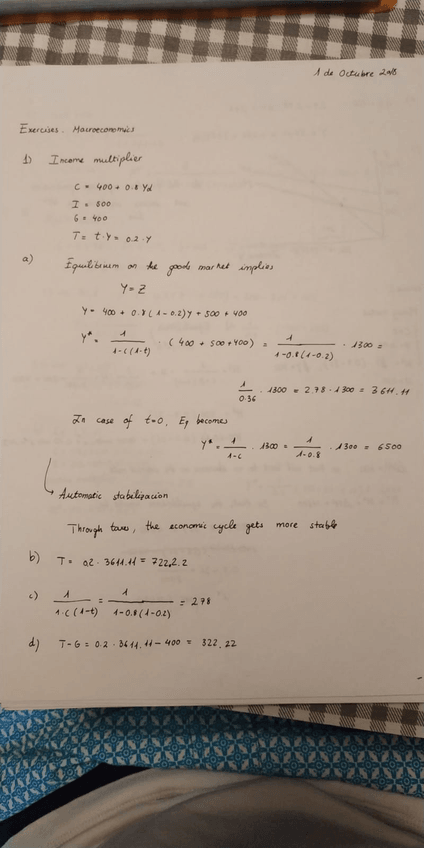 1 de Octubre 2018
Exercises. Macroeconomics
1) Income multiplier
C = 400 + 0.8 Yd
I = 500
G = 400
T = t·Y = 0.2·Y
a) Equilibium on the goods market implies
Y = Z
Y = 400 + 0.8 (1-0.2) Y + 500 + 400
Y* = 1 / 1-c(1-t) · (400 + 500 + 400) = 1 / 1-0.8(1-0.2) · 1300 =
1 / 0.36 · 1300 = 2.78 · 1300 = 3611.11
In case of t=0, Eq becomes
Y* = 1 / 1-c · 1300 = 1 / 1-0.8 · 1300 = 6500
Automatic stabelizacion
Through taxes, the economic cycle gets more stable
b) T = 0.2 · 3611.11 = 722,2.2
c) 1 / 1-c(1-t) = 1 / 1-0.8(1-0.2) = 2.78
d) T-G = 0.2 · 3611.11 - 400 = 322.22